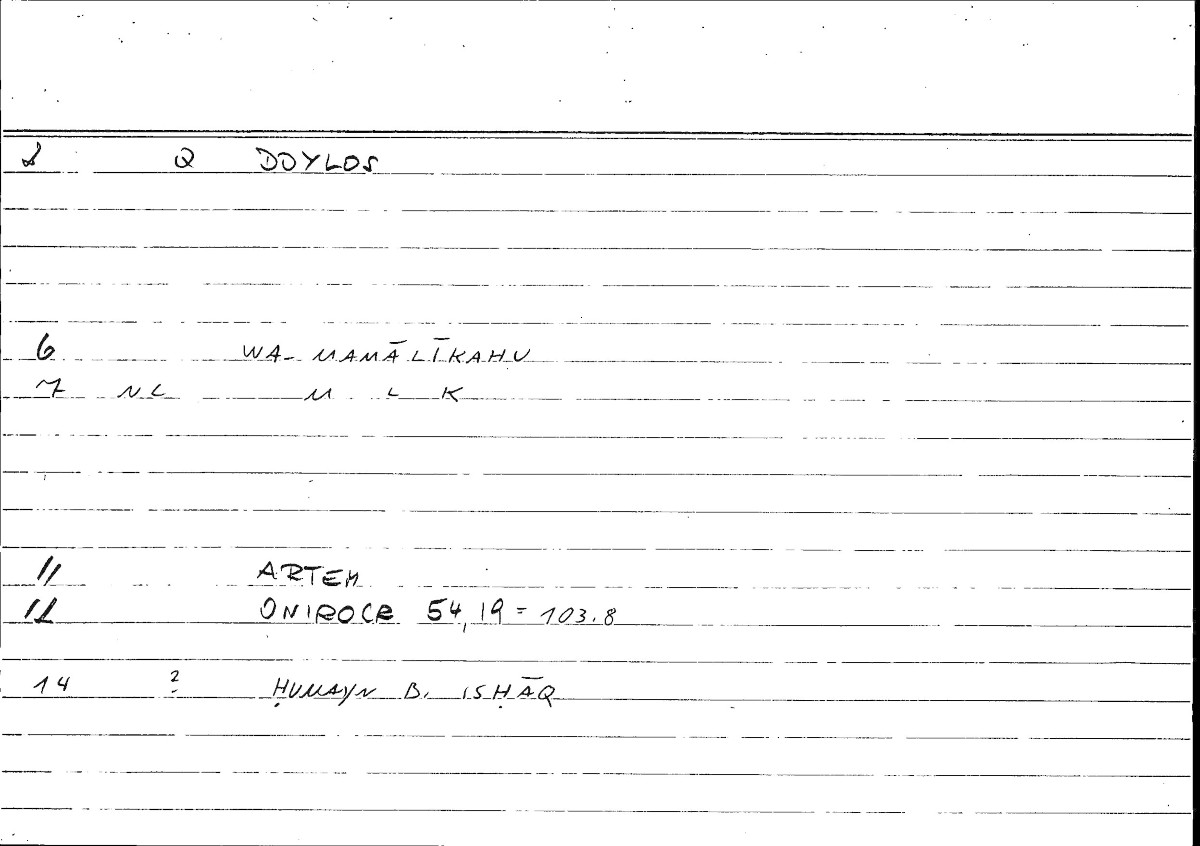 1 Q DOYLOS
6 WA- MAMĀLĪKAHU
7 NL M L K
11 ARTEM
12 ONIROCR 54,19 = 103.8
14 ? ḤUNAYN B. ISḤĀQ